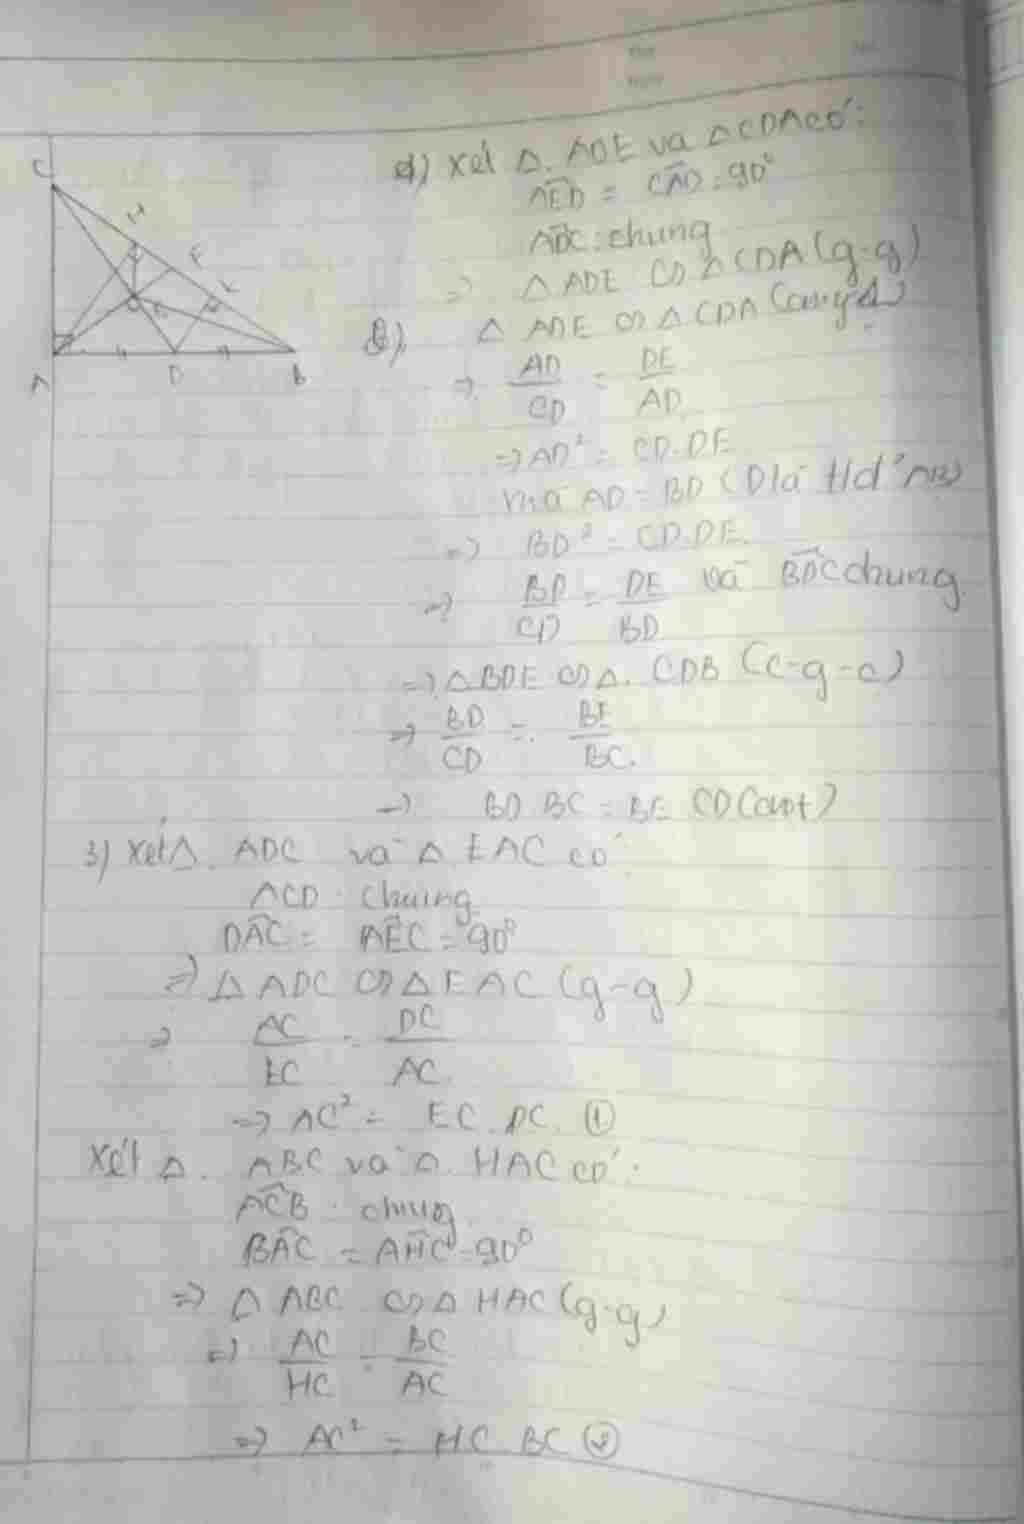 C
H
F
K
A
D
B
a) Xét Δ. ADE và ΔCDA có:
AED = CAD = 90°
ADC: chung
=> Δ ADE ∽ Δ CDA (g-g)
b), Δ ADE ∽ Δ CDA
=> AD/CD = DE/AD
=> AD² = CD.DE
mà AD = BD (D là
=> BD² = CD.DE.
=> BD/CD = DE/BD và BDC chung
=> ΔBDE ∽ Δ. CDB (c-g-c)
=> BD/CD = BE/BC.
=> BD BC = BE CD
3) Xét Δ. ADC và Δ EAC có
ACD chung
DAC = AEC = 90°
=> Δ ADC ∽ Δ EAC (g-g)
=> AC/EC = DC/AC.
=> AC² = EC. DC. ①
Xét Δ. ABC và Δ. HAC có:
ACB chung
BAC = AHC = 90°
=> Δ ABC ∽ Δ HAC (g-g)
=> AC/HC = BC/AC
=> AC² = HC BC ②